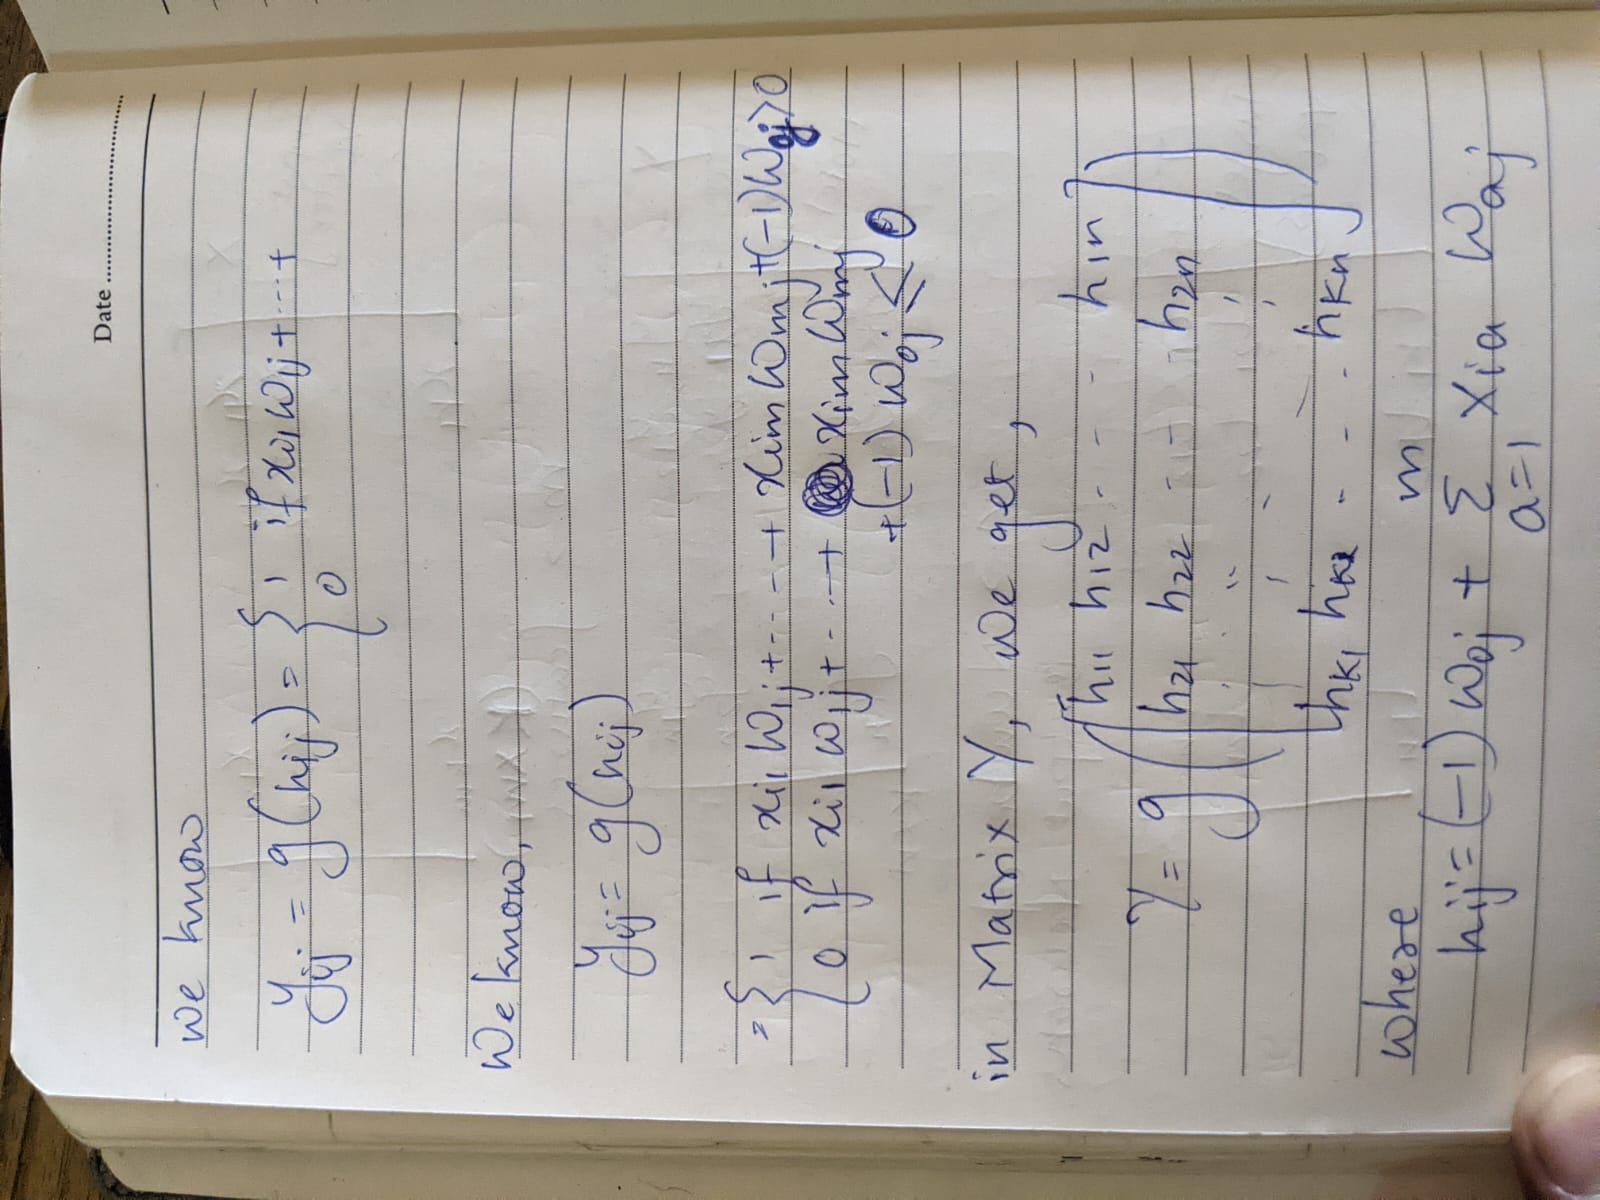 Date
we know
yij = g(hij) = { 1 if xi1 w1j + ... +
0
We know,
yij = g(hij)
= { 1 if xi1 w1j + ... + xim wmj + (-1)w0j > 0
0 if xi1 w1j + ... + xim wmj
+ (-1) w0j ≤ 0
in Matrix Y, we get,
h11 h12 - - - h1n
Y = g ( [ h21 h22 - - - h2n ] )
hk1 hk2 - - - hkn
where
m
hij = (-1) w0j + Σ xia waj
a=1